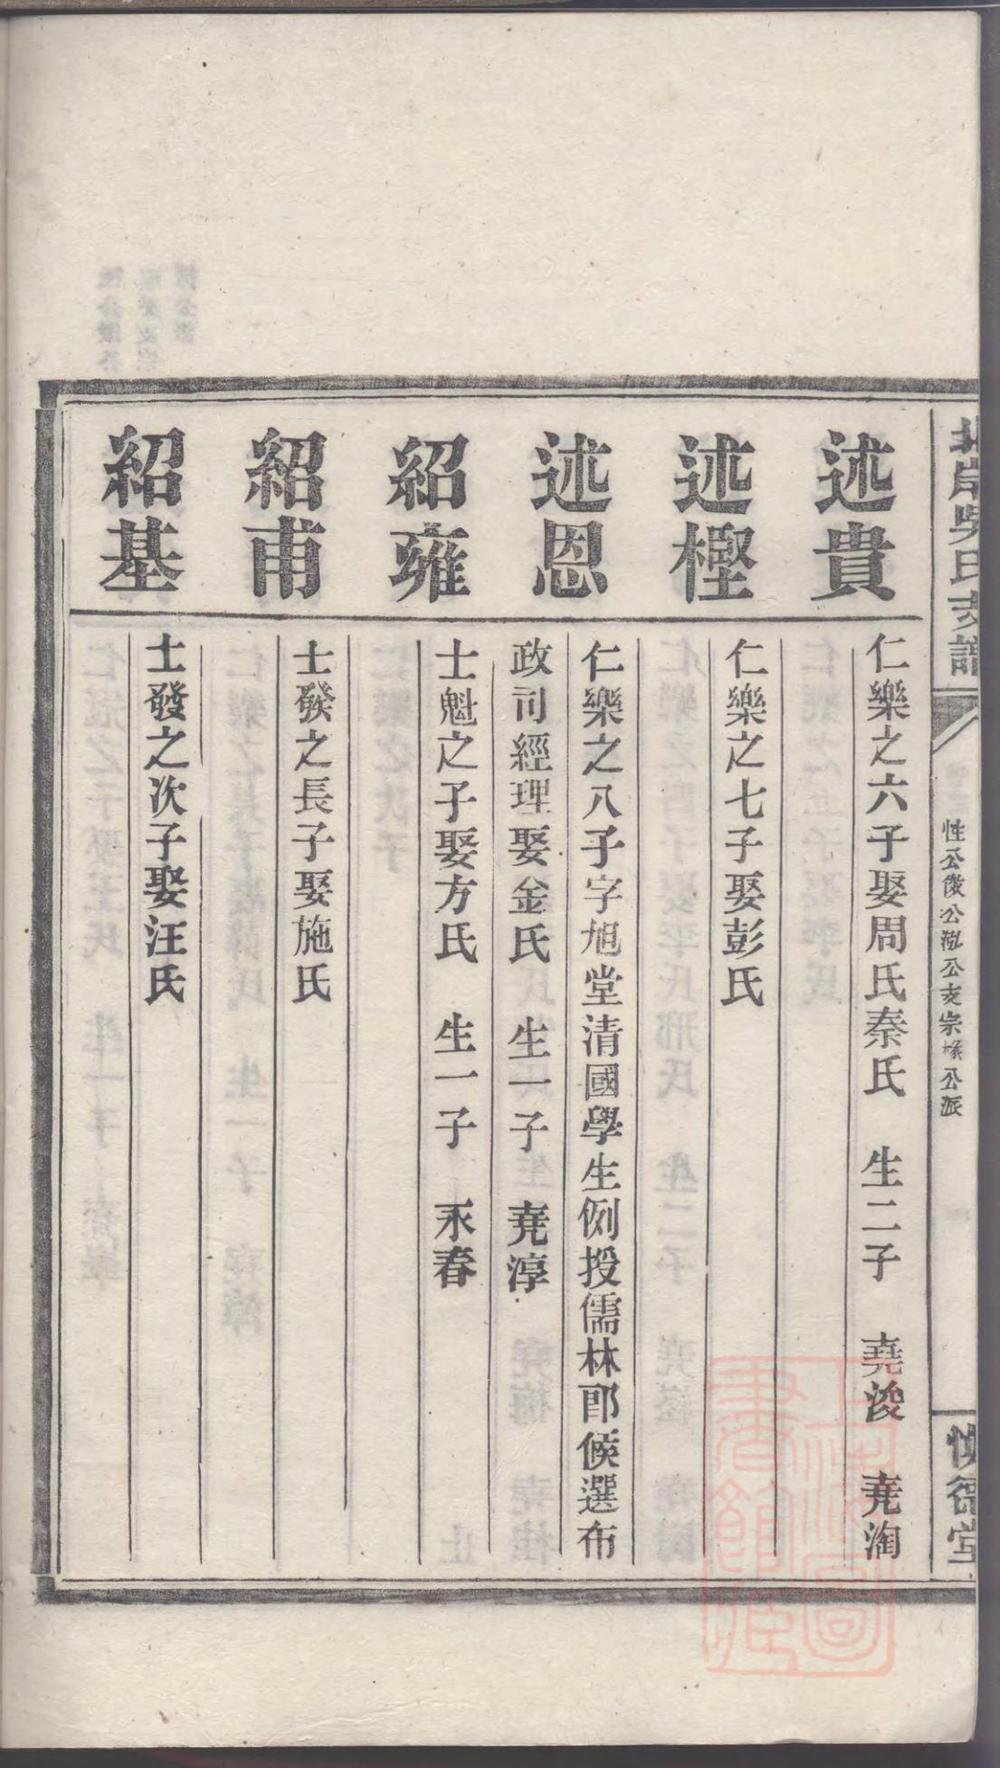 北岸吳氏支譜
慎德堂
述貴
仁樂之六子娶周氏秦氏 生二子 堯浚 堯淘
述樫
仁樂之七子娶彭氏
述恩
仁樂之八子字旭堂清國學生例授儒林郎候選布
政司經理娶金氏 生一子 堯淳
紹雍
士魁之子娶方氏 生一子 永春
紹甫
士發之長子娶施氏
紹基
士發之次子娶汪氏